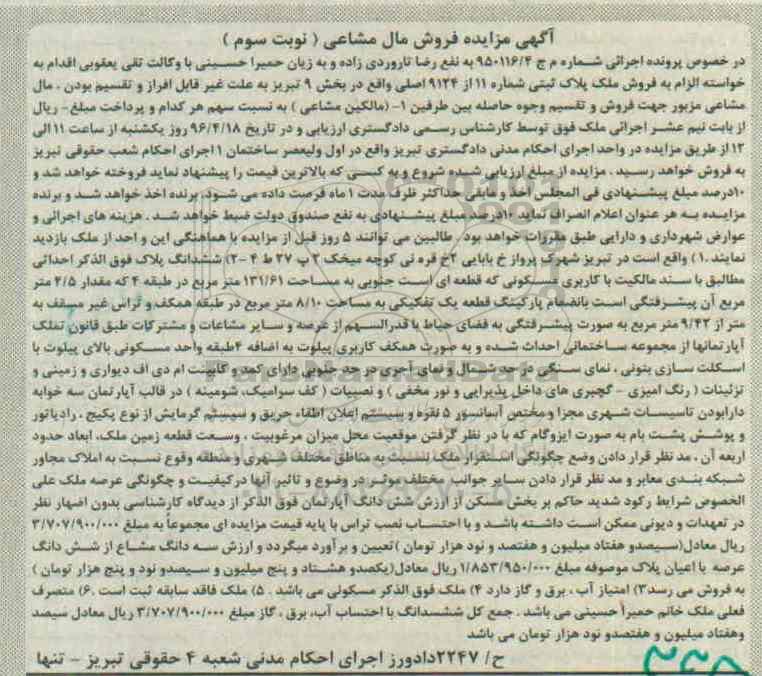 آگهی مزایده فروش مال مشاعی ( نوبت سوم )
در خصوص پرونده اجرائی شماره م ج ۹۵۰۱۱۶/۴ به نفع رضا تاروردی زاده و به زیان حمیرا حسینی با وکالت تقی یعقوبی اقدام به
خواسته الزام به فروش ملک پلاک ثبتی شماره ۱۱ از ۹۱۲۴ اصلی واقع در بخش ۹ تبریز به علت غیر قابل افراز و تقسیم بودن ، مال
مشاعی مزبور جهت فروش و تقسیم وجوه حاصله بین طرفین ۱- (مالکین مشاعی ) به نسبت سهم هر کدام و پرداخت مبلغ- ریال
از بابت نیم عشر اجرائی ملک فوق توسط کارشناس رسمی دادگستری ارزیابی و در تاریخ ۹۶/۴/۱۸ روز یکشنبه از ساعت ۱۱ الی
۱۲ از طریق مزایده در واحد اجرای احکام مدنی دادگستری تبریز واقع در اول ولیعصر ساختمان ۱ اجرای احکام شعب حقوقی تبریز
به فروش خواهد رسید ، مزایده از مبلغ ارزیابی شده شروع و به کسی که بالاترین قیمت را پیشنهاد نماید فروخته خواهد شد و
۱۰درصد مبلغ پیشنهادی فی المجلس اخذ و مابقی حداکثر ظرف مدت ۱ ماه فرصت داده می شود، برنده اخذ خواهد شد و برنده
مزایده به هر عنوان اعلام انصراف نماید ۱۰درصد مبلغ پیشنهادی به نفع صندوق دولت ضبط خواهد شد . هزینه های اجرائی و
عوارض شهرداری و دارایی طبق مقررات خواهد بود . طالبین می توانند ۵ روز قبل از مزایده با هماهنگی این و احد از ملک بازدید
نمایند .۱) واقع است در تبریز شهرک پرواز خ بابایی ۲خ قره نی کوچه میخک ۲ پ ۲۷ ط ۴ -۲) ششدانگ پلاک فوق الذکر احداثی
مطالبق با سند مالکیت با کاربری مسکونی که قطعه ای است جنوبی به مساحت ۱۳۱/۶۱ متر مربع در طبقه ۴ که مقدار ۴/۵ متر
مربع آن پیشرفتگی است بانضمام پارکینگ قطعه یک تفکیکی به مساحت ۸/۱۰ متر مربع در طبقه همکف و تراس غیر مسقف به
متر از ۹/۴۲ متر مربع به صورت پیشرفتگی به فضای حیاط با قدرالسهم از عرصه و سایر مشاعات و مشترکات طبق قانون تملک
آپارتمانها از مجموعه ساختمانی احداث شده و به صورت همکف کاربری پیلوت به اضافه ۴طبقه واحد مسکونی بالای پیلوت با
اسکلت سازی بتونی ، نمای سنگی در حد شمال و نمای آجری در حد جنوبی دارای کمد و کابینت ام دی اف دیواری و زمینی و
تزئینات ( رنگ امیزی - گچبری های داخل پذیرایی و نور مخفی ) و نصبیات ( کف سرامیک، شومینه ) در قالب آپارتمان سه خوابه
دارابودن تاسیسات شهری مجزا و مختص آسانسور ۵ نفره و سیستم اعلان اطفاء حریق و سیستم گرمایش از نوع پکیج ، رادیاتور
و پوشش پشت بام به صورت ایزوگام که با در نظر گرفتن موقعیت محل میزان مرغوبیت ، وسعت قطعه زمین ملک، ابعاد حدود
اربعه آن ، مد نظر قرار دادن وضع چگونگی استقرار ملک نسبت به مناطق مختلف شهری و منطقه وقوع نسبت به املاک مجاور
شبکه بندی معابر و مد نظر قرار دادن سایر جوانب مختلف موثر در وضوع و تاثیر آنها درکیفیت و چگونگی عرصه ملک علی
الخصوص شرایط رکود شدید حاکم بر بخش مسکن از ارزش شش دانگ آپارتمان فوق الذکر از دیدگاه کارشناسی بدون اضهار نظر
در تعهدات و دیونی ممکن است داشته باشد و با احتساب نصب تراس با پایه قیمت مزایده ای مجموعاً به مبلغ ۳/۷۰۷/۹۰۰/۰۰۰
ریال معادل(سیصدو هفتاد میلیون و هفتصد و نود هزار تومان )تعیین و برآورد میگردد و ارزش سه دانگ مشاع از شش دانگ
عرصه با اعیان پلاک موصوفه مبلغ ۱/۸۵۳/۹۵۰/۰۰۰ ریال معادل(یکصدو هشتاد و پنج میلیون و سیصدو نود و پنج هزار تومان )
به فروش می رسد۳) امتیاز آب ، برق و گاز دارد ۴) ملک فوق الذکر مسکونی می باشد . ۵) ملک فاقد سابقه ثبت است .۶) متصرف
فعلی ملک خانم حمیرا حسینی می باشد . جمع کل ششسدانگ با احتساب آب، برق ، گاز مبلغ ۳/۷۰۷/۹۰۰/۰۰۰ ریال معادل سیصد
وهفتاد میلیون و هفتصدو نود هزار تومان می باشد
ح/ ۲۲۴۷دادورز اجرای احکام مدنی شعبه ۴ حقوقی تبریز - تنها